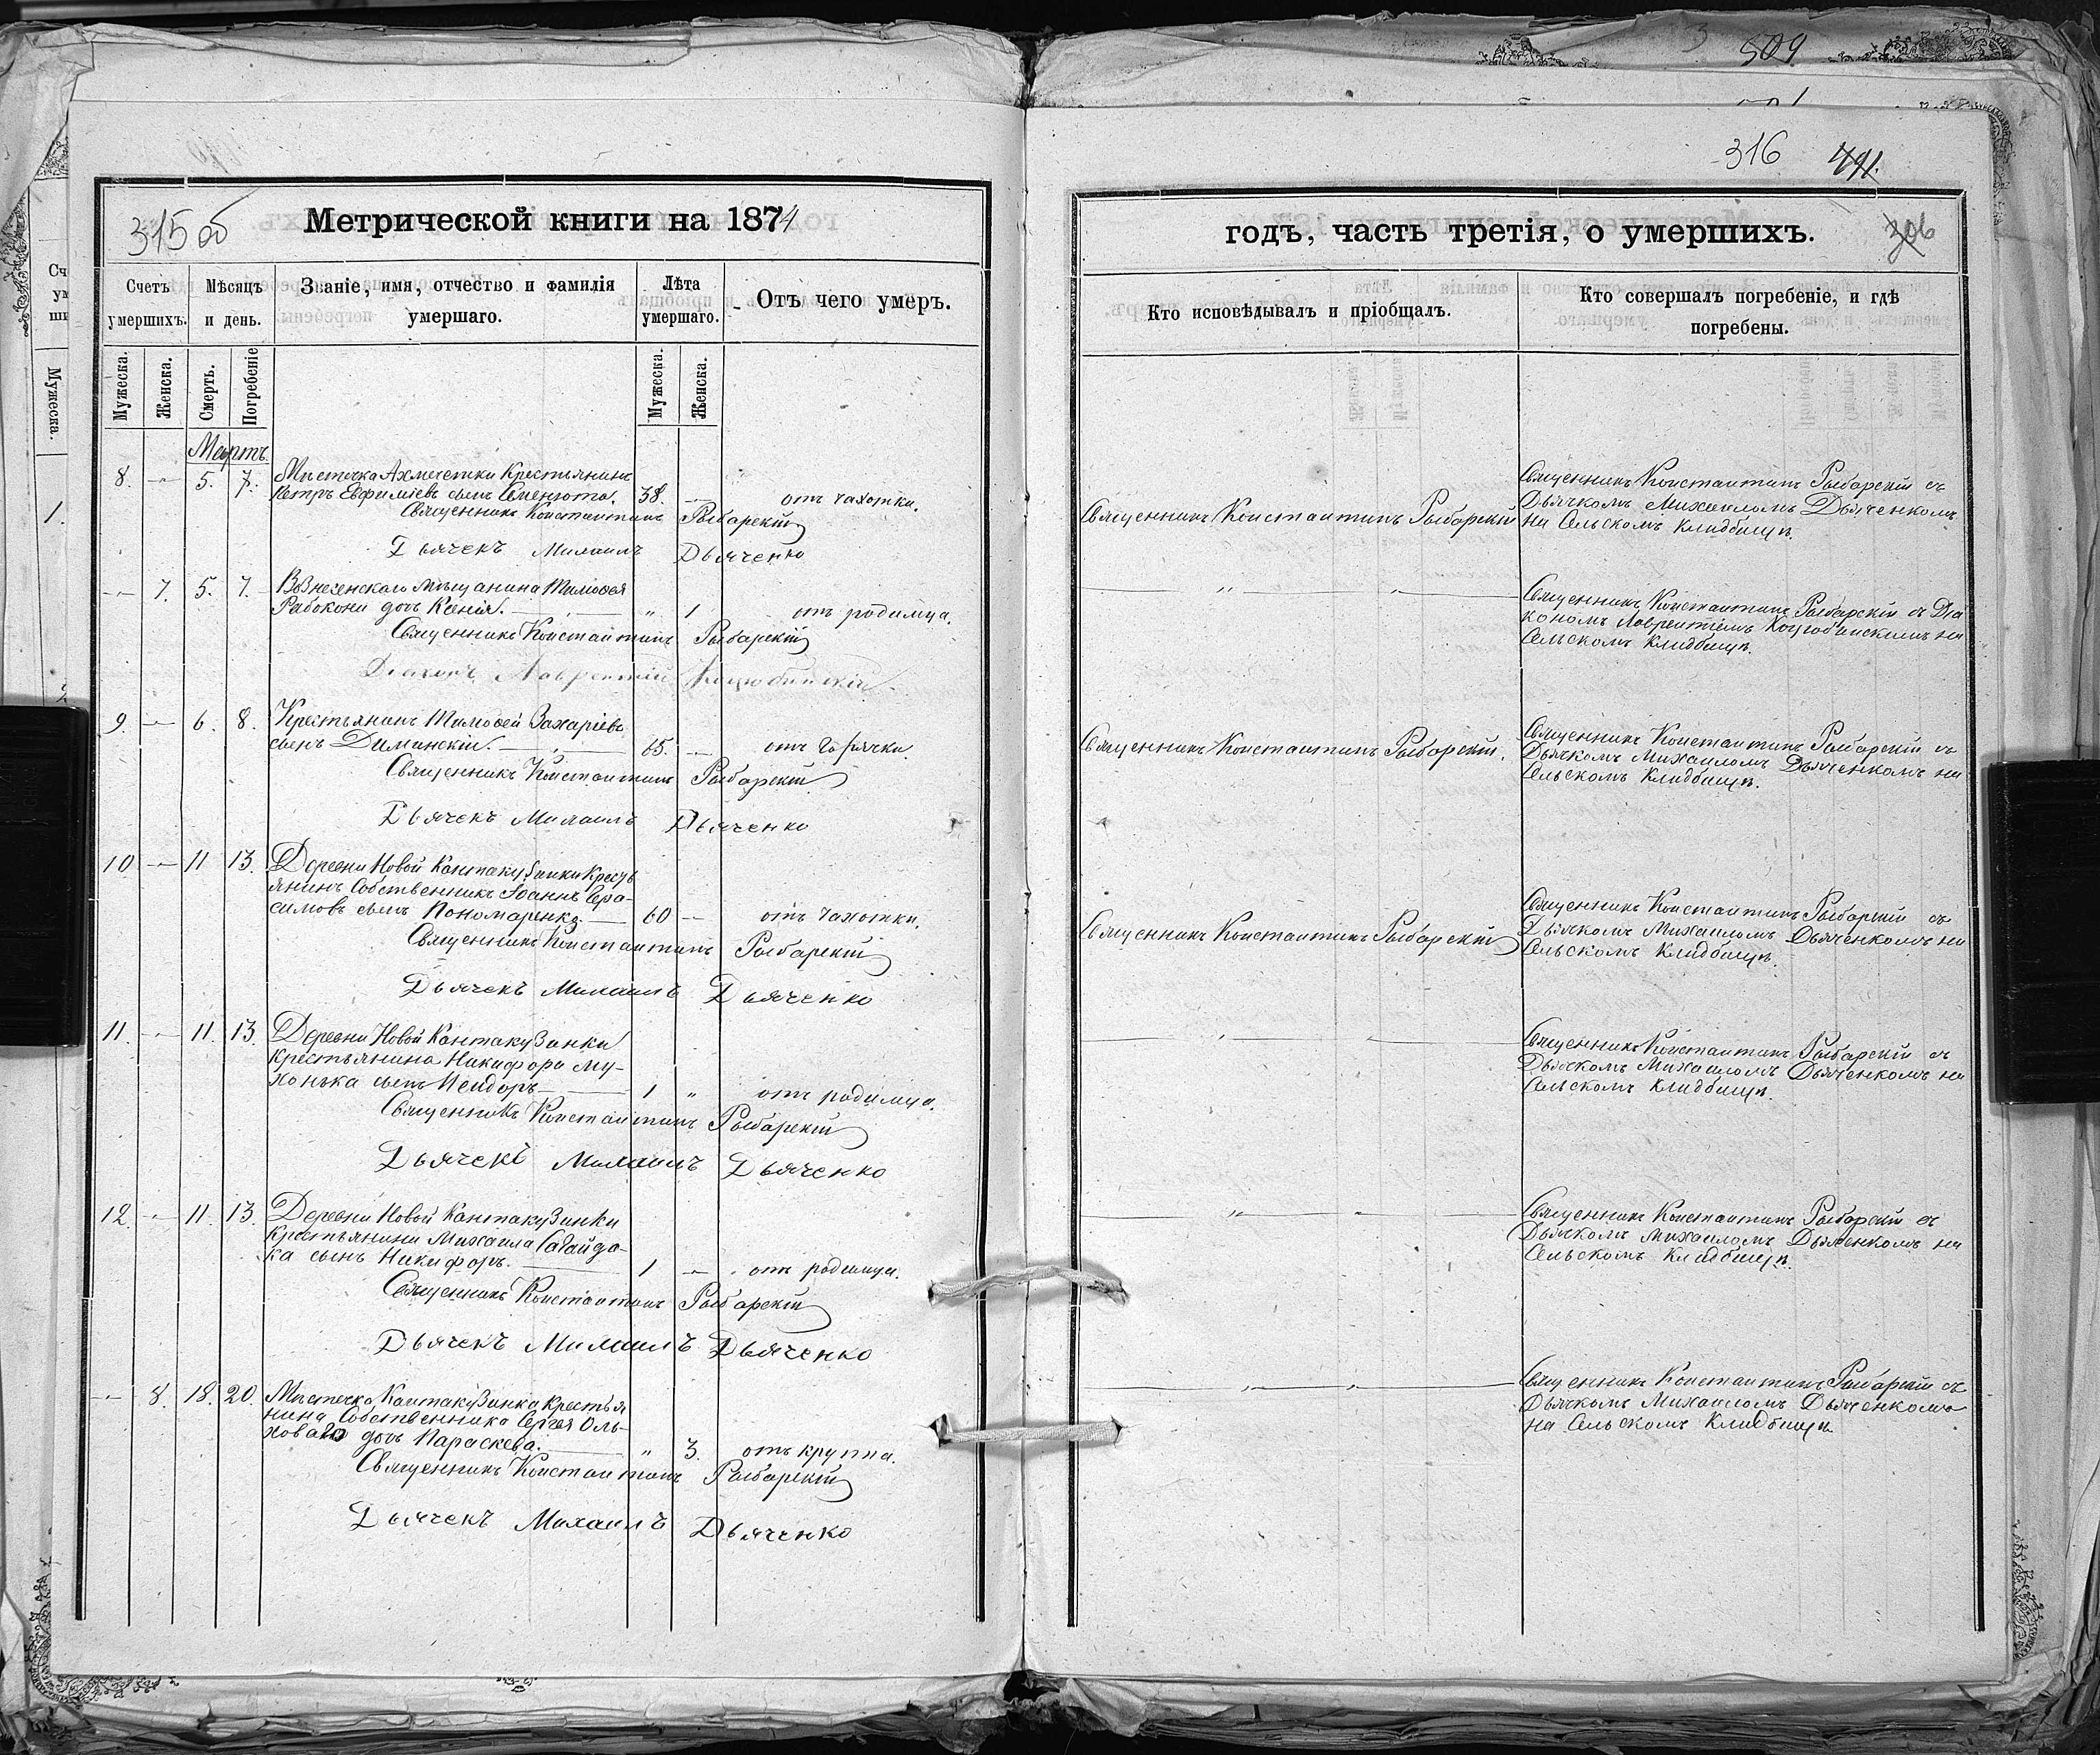 509
316 491.
315 об
Метрической книги на 1874
годъ, часть третія, о умершихъ.
306
Счетъ умершихъ.
Мѣсяцъ и день.
Званіе, имя, отчество и фамилія умершаго.
Лѣта умершаго.
Отъ чего умеръ.
Кто исповѣдывалъ и пріобщалъ.
Кто совершалъ погребеніе, и гдѣ погребены.
Мужеска.
Женска.
Смерть.
Погребеніе
Мужеска.
Женска.
Мартъ.
8. 5. 7. Мѣстечка Ахмечетки Крестьянинъ
Петръ Евфиміевъ сынъ 38. отъ чахотки.
Священникъ Константинъ Рыбарскій
Дьячекъ Михаилъ Дьяченко
Священникъ Константинъ Рыбарскій
Священникъ Константинъ Рыбарскій съ
Дьячкомъ Михаиломъ Дьяченкомъ
на Сельскомъ кладбищѣ.
7. 5. 7. Вознесенскаго Мѣщанина Тимофея
Рабокони дочь Ксенія. „ 1 отъ родимца.
Священникъ Константинъ Рыбарскій
Діаконъ Лаврентій Коцюбинскій
„ „
Священникъ Константинъ Рыбарскій съ Діа
кономъ Лаврентіемъ Коцюбинскимъ на
Сельскомъ кладбищѣ.
9. 6. 8. Крестьянинъ Тимофей Захаріевъ
сынъ Диминскій. 65. отъ горячки.
Священникъ Константинъ Рыбарскій
Дьячекъ Михаилъ Дьяченко
Священникъ Константинъ Рыбарскій.
Священникъ Константинъ Рыбарскій съ
Дьячкомъ Михаиломъ Дьяченкомъ на
Сельскомъ Кладбищѣ.
10 11 13. Деревни Новой Кантакузинки Кресть
янинъ Собственникъ Іоаннъ Гера-
симовъ сынъ Пономаренко. 60 отъ чахотки.
Священникъ Константинъ Рыбарскій
Дьячекъ Михаилъ Дьяченко
Священникъ Константинъ Рыбарскій
Священникъ Константинъ Рыбарскій съ
Дьячкомъ Михаиломъ Дьяченкомъ на
Сельскомъ Кладбищѣ.
11. 11. 13. Деревни Новой Кантакузинки
крестьянина Никифора Му-
хонька сынъ Исидоръ 1 „ отъ родимца.
Священникъ Константинъ Рыбарскій
Дьячекъ Михаилъ Дьяченко
„ „
Священникъ Константинъ Рыбарскій съ
Дьячкомъ Михаиломъ Дьяченкомъ на
Сельскомъ Кладбищѣ.
12. 11. 13. Деревни Новой Кантакузинки
Крестьянина Михаила Сагайда-
ка сынъ Никифоръ. 1 отъ родимца.
Священникъ Константинъ Рыбарскій
Дьячекъ Михаилъ Дьяченко
„ „
Священникъ Константинъ Рыбарскій съ
Дьячкомъ Михаиломъ Дьяченкомъ на
Сельскомъ Кладбищѣ.
8. 18. 20. Мѣстечка Кантакузинки крестья
нина Собственника Сергея Оль-
ховаго дочь Параскева. „ 3. отъ круппа.
Священникъ Константинъ Рыбарскій
Дьячекъ Михаилъ Дьяченко
„ „
Священникъ Константинъ Рыбарскій съ
Дьячкомъ Михаиломъ Дьяченкомъ
на Сельскомъ Кладбищѣ
Мужеска.
1.